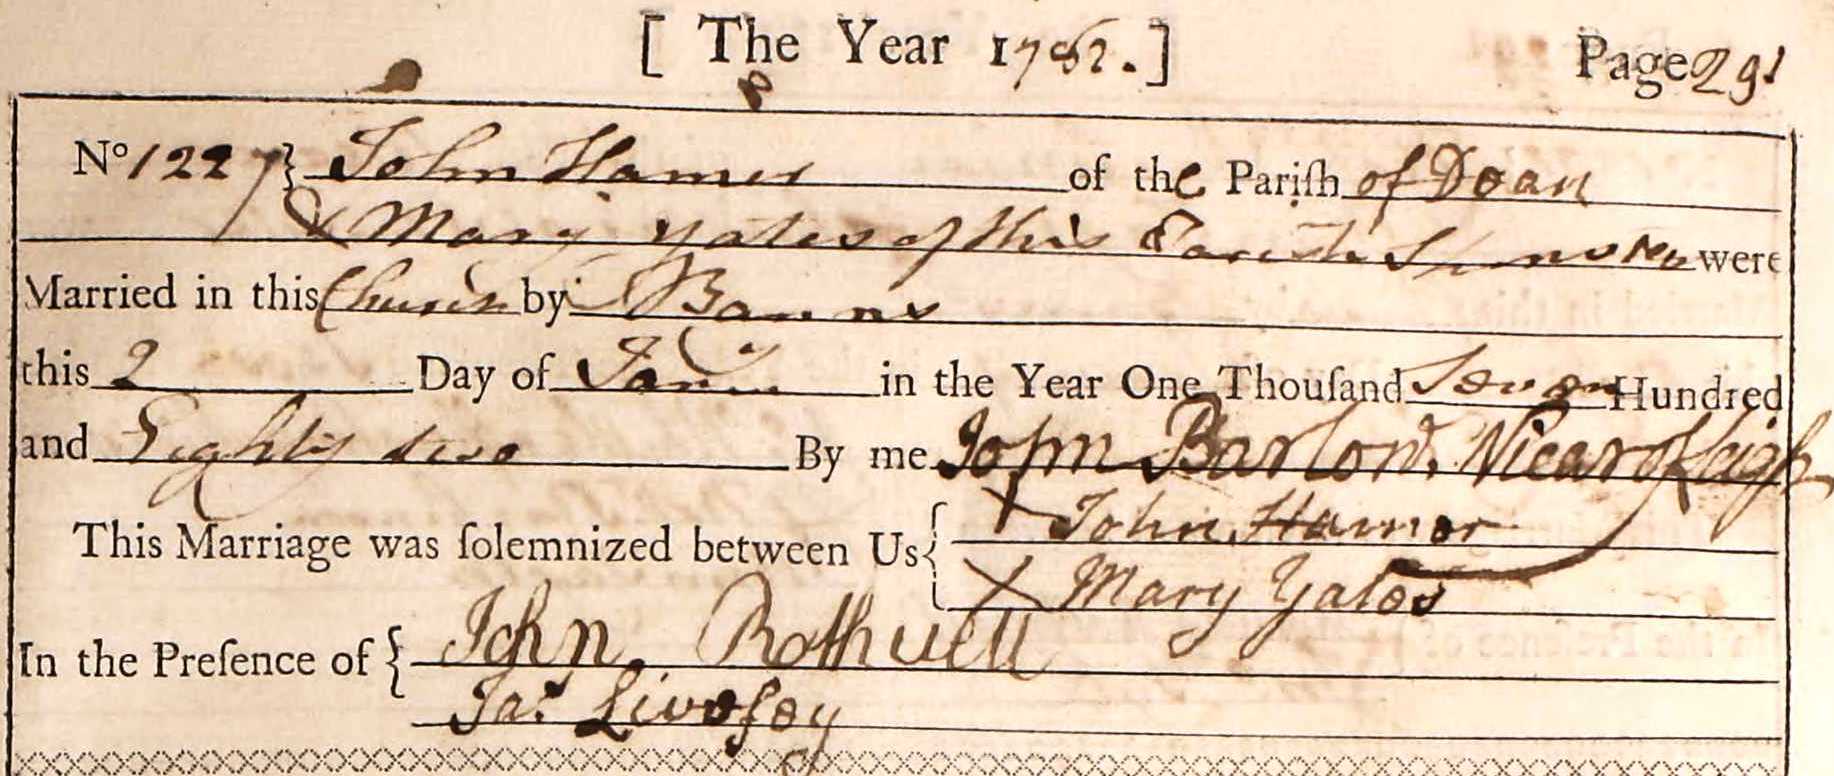 [ The Year 1782. ] Page 291
No 1227 } John Hamer of the Pariſh of Dean
& Mary Yates of this Parish Spinster were
Married in this Church by Banns
this 2 Day of in the Year One Thouſand Seven Hundred
and Eighty two By me John Barlow, Vicar of Leigh
This Marriage was ſolemnized between Us { X John Hamer
X Mary Yates
In the Preſence of { John Rothwell
Jas Livesey